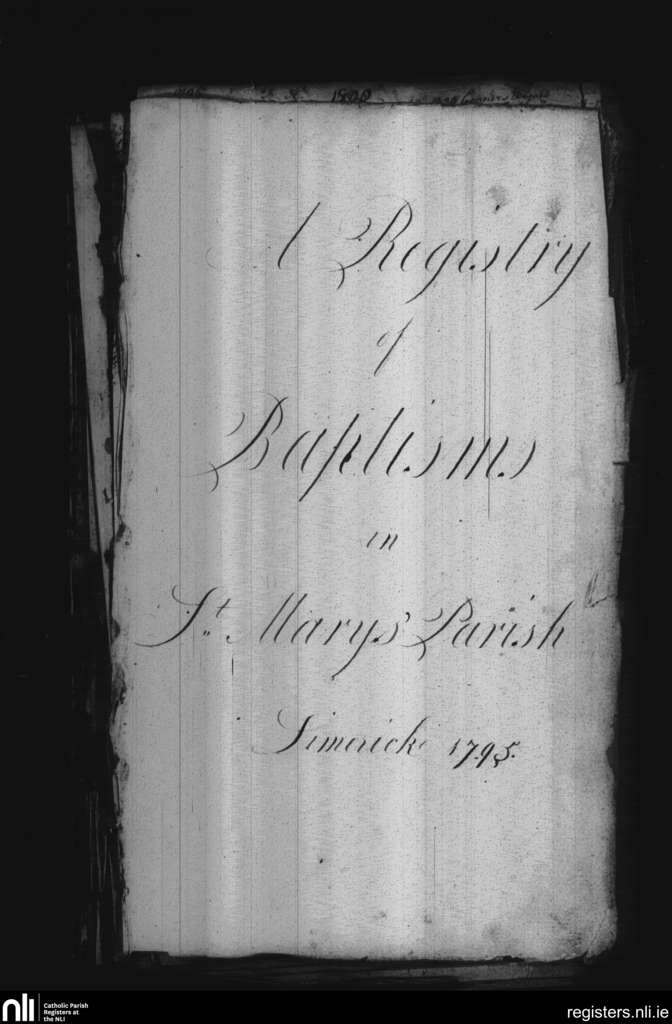 1800
A Registry
of
Baptisms
in
St. Marys' Parish
Limerick 1795.
nli
Catholic Parish
Registers at
the NLI
registers.nli.ie